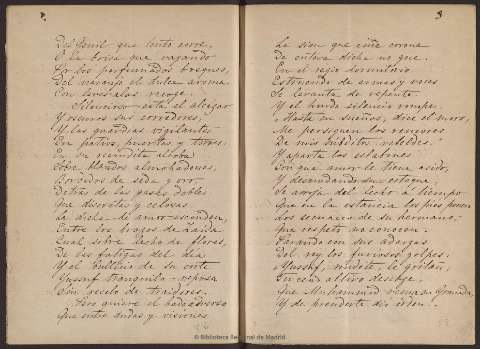 Del Genil que lento corre,
O la brisa que vagando
Por los perfumados bosques,
Del naranjo el dulce aroma
Con leves alas recoge.
Silencioso está el alcázar
Y oscuros sus corredores,
Y las guardias vigilantes
En patios, puertas y torres;
En su recóndita alcoba
Sobre blandos almohadones,
Bordados de seda y oro
Detrás de los paños dobles
Que discretos y celosos
La dicha de amor esconden,
Entre los brazos de
Cual sobre lecho de flores,
De las fatigas del día
Y el bullicio de su corte
Yussuf tranquilo reposa
Sin recelo de traidores.
Pero quiere el hado adverso
Que entre dudas y visiones
3
La sien que ciñe corona
De entera dicha no goce.
En el regio dormitorio
armas y voces
Se levanta de repente
Y el hondo silencio rompe.
¿Hasta en sueños, dice el moro,
Me persiguen los rumores
De mis súbditos rebeldes?
Y aparta los eslabones
Con que amor le tiene asido,
Y desnudando su estoque
Se arroja del lecho a tiempo
Que en la estancia los pies ponen
dos esclavos de su hermano,
que respeto no conocen.
Parando con sus adargas
Del rey los furiosos golpes:
¡Yussuf, ríndete, le gritan,
En vano altivo
Que Muhammad reina en Granada,
Y de prenderte dio orden!
Biblioteca Regional de Madrid